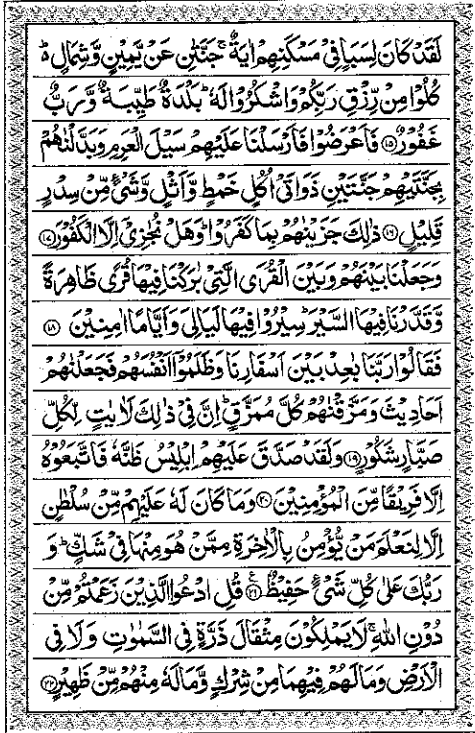 لَقَدْ كَانَ لِسَبَاٍ فِیْ مَسْكَنِهِمْ اٰیَةٌ ۚ جَنَّتٰنِ عَنْ یَّمِیْنٍ وَّشِمَالٍ ؕ
كُلُوْا مِنْ رِّزْقِ رَبِّكُمْ وَاشْكُرُوْا لَهٗ ؕ بَلْدَةٌ طَیِّبَةٌ وَّرَبٌّ
غَفُوْرٌ ﴿۱۵﴾ فَاَعْرَضُوْا فَاَرْسَلْنَا عَلَیْهِمْ سَیْلَ الْعَرِمِ وَبَدَّلْنٰهُمْ
بِجَنَّتَیْهِمْ جَنَّتَیْنِ ذَوَاتَیْ اُكُلٍ خَمْطٍ وَّاَثْلٍ وَّشَیْءٍ مِّنْ سِدْرٍ
قَلِیْلٍ ﴿۱۶﴾ ذٰلِكَ جَزَیْنٰهُمْ بِمَا كَفَرُوْا ؕ وَهَلْ نُجٰزِیْۤ اِلَّا الْكَفُوْرَ ﴿۱۷﴾
وَجَعَلْنَا بَیْنَهُمْ وَبَیْنَ الْقُرَی الَّتِیْ بٰرَكْنَا فِیْهَا قُرًی ظَاهِرَةً
وَّقَدَّرْنَا فِیْهَا السَّیْرَ ؕ سِیْرُوْا فِیْهَا لَیَالِیَ وَاَیَّامًا اٰمِنِیْنَ ﴿۱۸﴾
فَقَالُوْا رَبَّنَا بٰعِدْ بَیْنَ اَسْفَارِنَا وَظَلَمُوْۤا اَنْفُسَهُمْ فَجَعَلْنٰهُمْ
اَحَادِیْثَ وَمَزَّقْنٰهُمْ كُلَّ مُمَزَّقٍ ؕ اِنَّ فِیْ ذٰلِكَ لَاٰیٰتٍ لِّكُلِّ
صَبَّارٍ شَكُوْرٍ ﴿۱۹﴾ وَلَقَدْ صَدَّقَ عَلَیْهِمْ اِبْلِیْسُ ظَنَّهٗ فَاتَّبَعُوْهُ
اِلَّا فَرِیْقًا مِّنَ الْمُؤْمِنِیْنَ ﴿۲۰﴾ وَمَا كَانَ لَهٗ عَلَیْهِمْ مِّنْ سُلْطٰنٍ
اِلَّا لِنَعْلَمَ مَنْ یُّؤْمِنُ بِالْاٰخِرَةِ مِمَّنْ هُوَ مِنْهَا فِیْ شَكٍّ ؕ وَ
رَبُّكَ عَلٰی كُلِّ شَیْءٍ حَفِیْظٌ ﴿۲۱﴾ قُلِ ادْعُوا الَّذِیْنَ زَعَمْتُمْ مِّنْ
دُوْنِ اللّٰهِ ۚ لَا یَمْلِكُوْنَ مِثْقَالَ ذَرَّةٍ فِی السَّمٰوٰتِ وَلَا فِی
الْاَرْضِ وَمَا لَهُمْ فِیْهِمَا مِنْ شِرْكٍ وَّمَا لَهٗ مِنْهُمْ مِّنْ ظَهِیْرٍ ﴿۲۲﴾